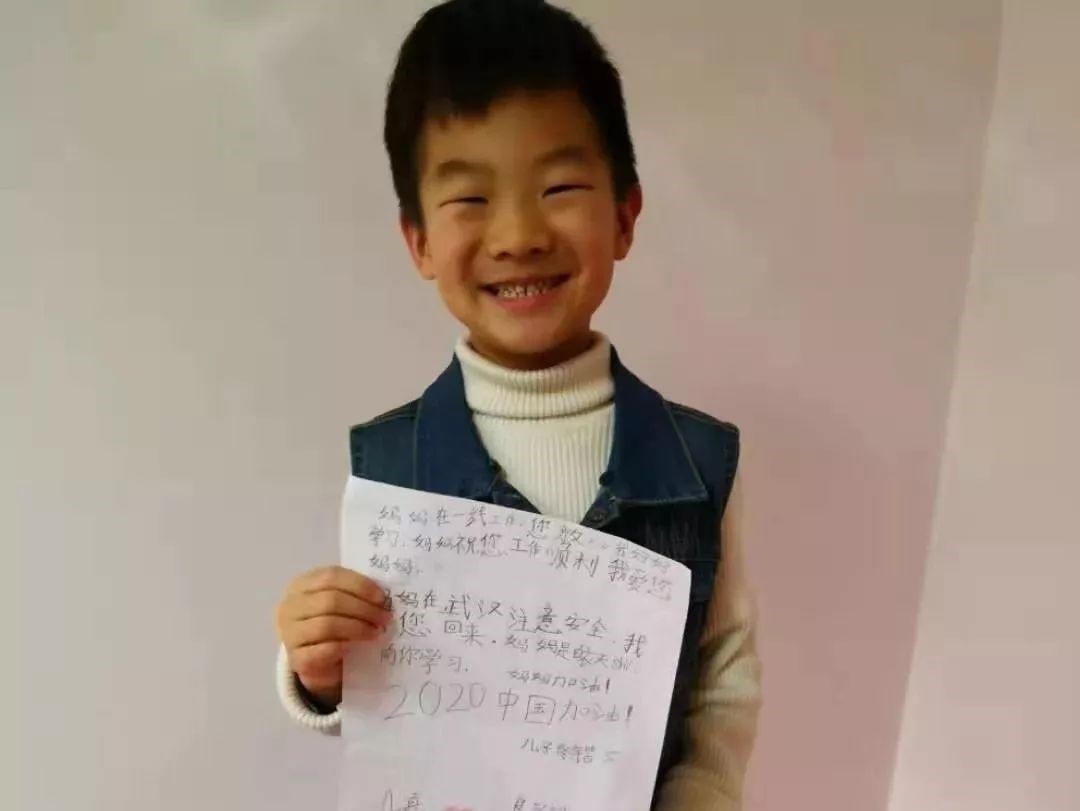 妈妈在一线工作,您放心,我好好
学习.妈妈祝您工作顺利 我爱您
妈妈.
妈在武汉注意安全.我
您回来.妈妈是天使
向你学习. 妈妈加油!
2020中国加油!
儿子